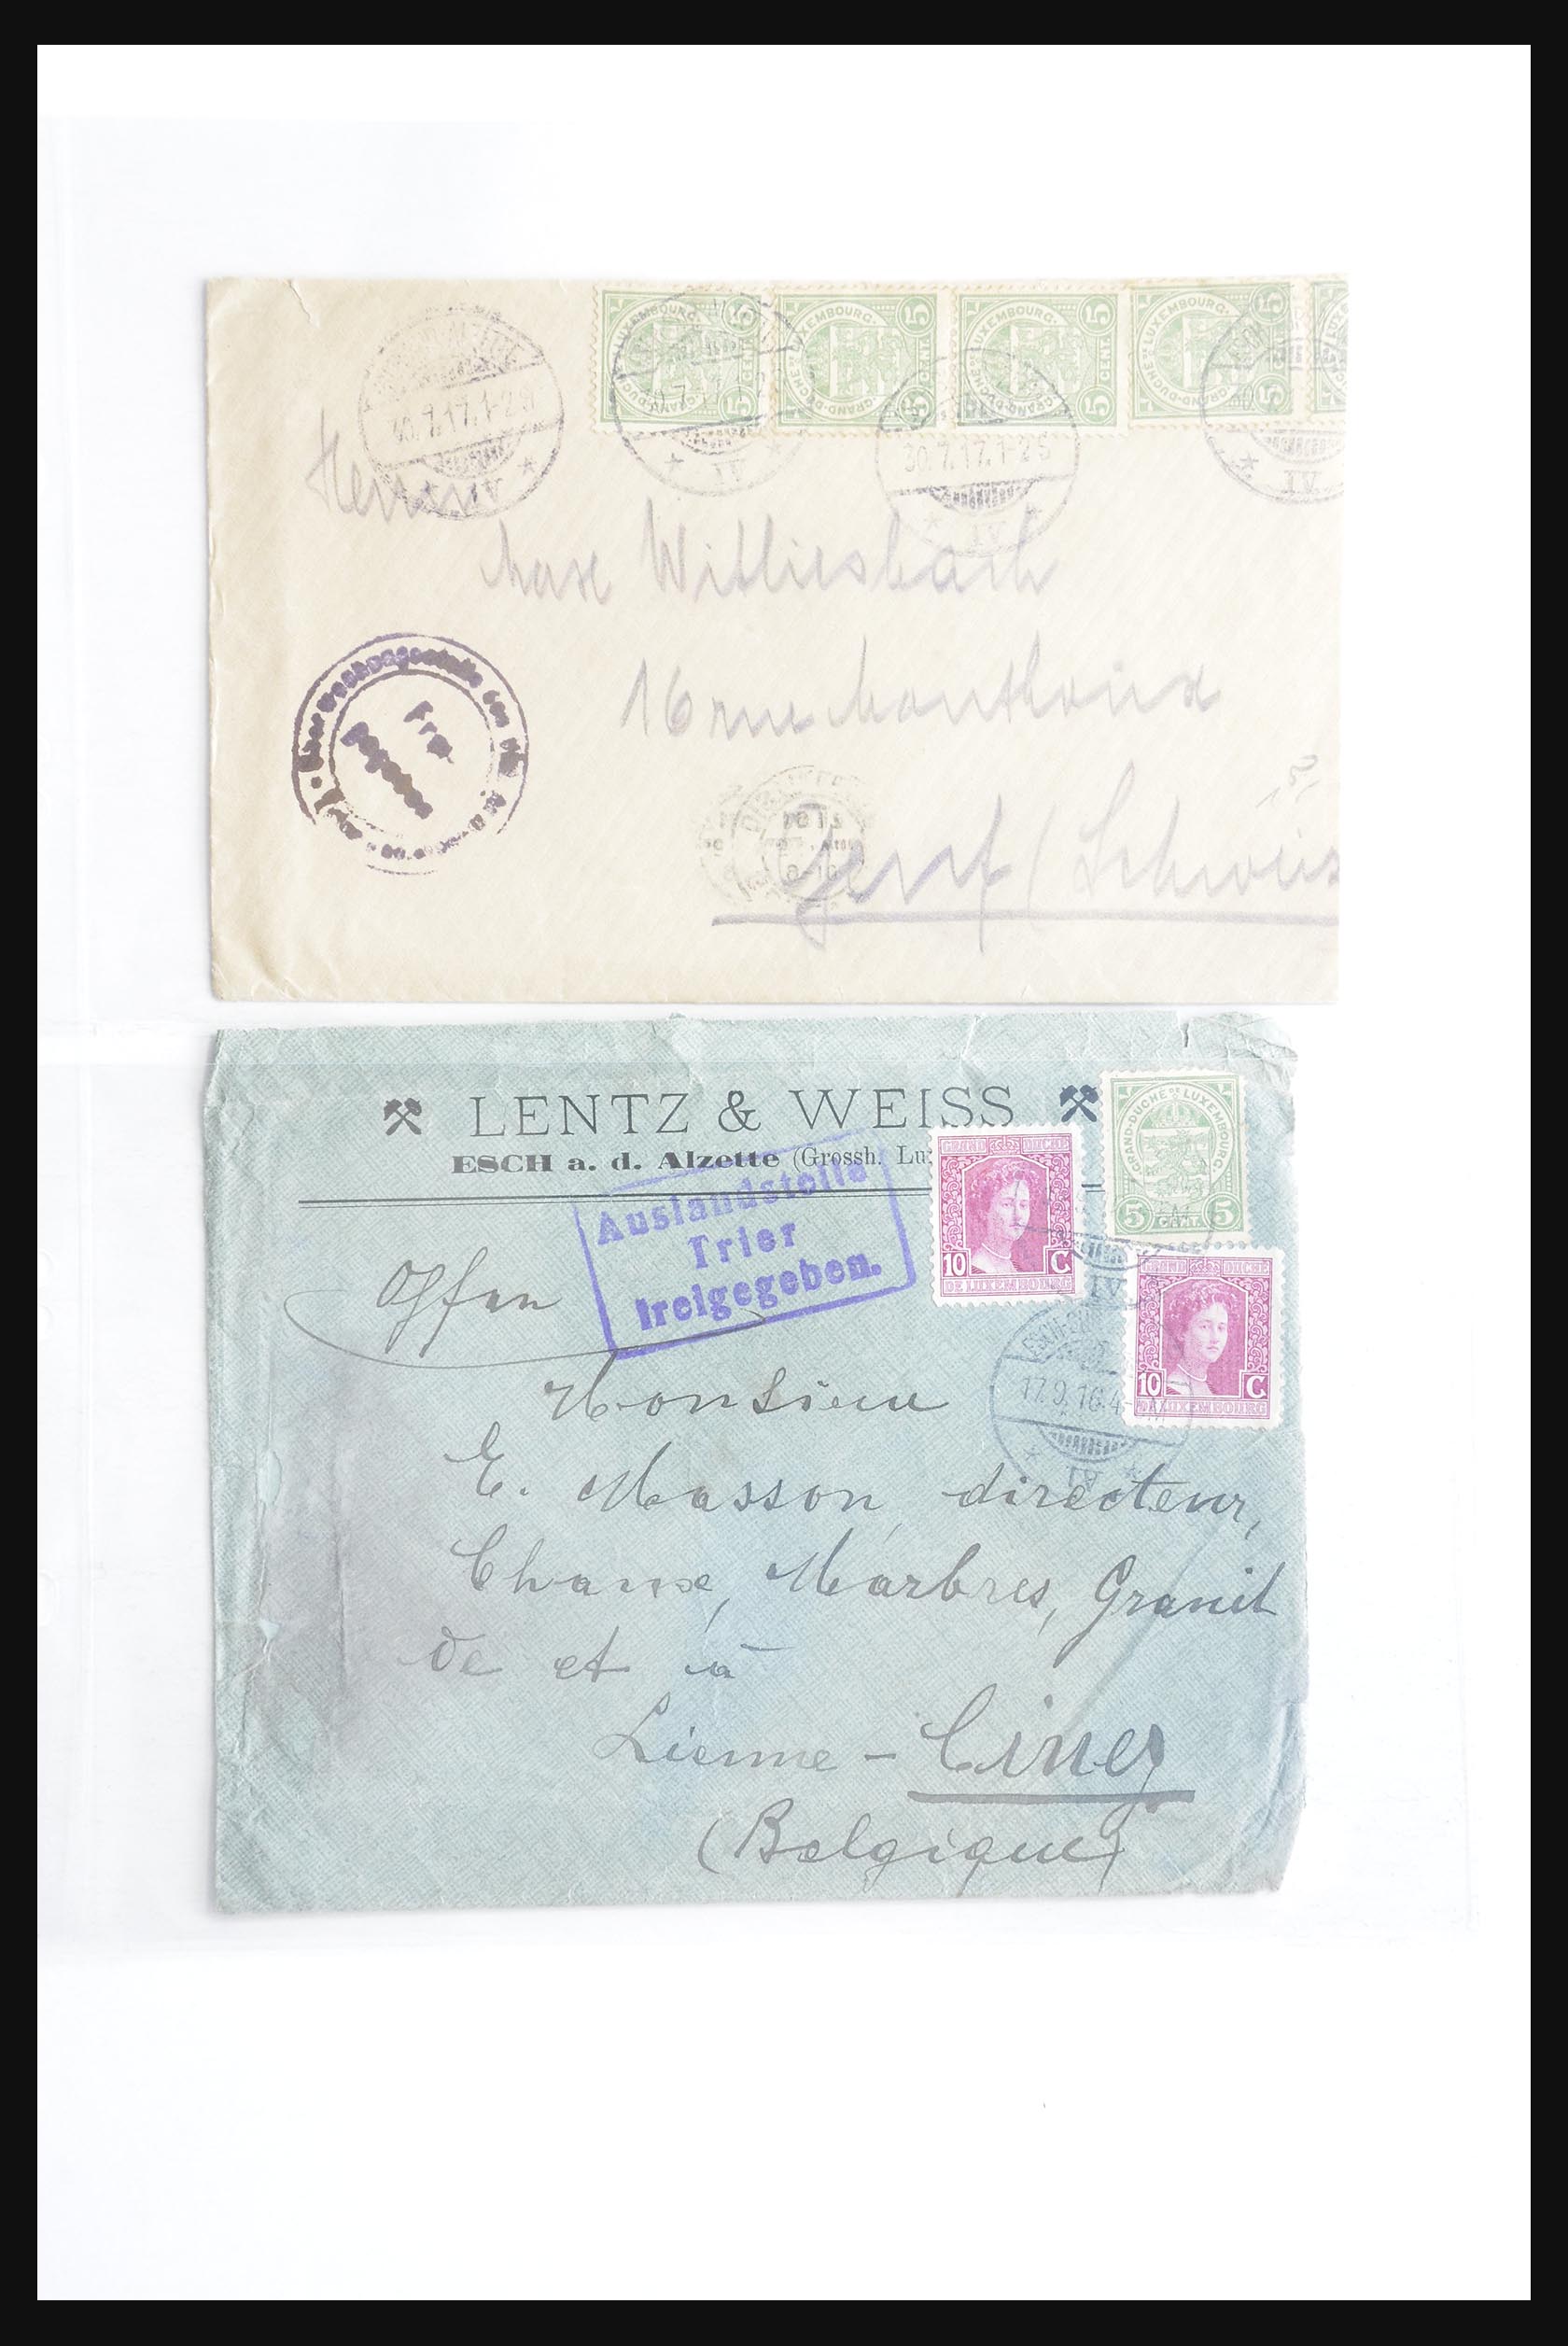 GRAND-DUCHÉ DE LUXEMBOURG. 5 CENT. 5
GRAND-DUCHÉ DE LUXEMBOURG. 5 CENT. 5
GRAND-DUCHÉ DE LUXEMBOURG. 5 CENT. 5
GRAND-DUCHÉ DE LUXEMBOURG. 5 CENT. 5
30.7.17.1-2S
IV
IV
30.7.17.1-2S
IV
IV
Herrn
Max Wittliesbach
16 rue Monthoux
Genf (Schweiz
LENTZ & WEISS
ESCH a. d. Alzette (Grossh. Lu
Auslandstelle
Trier
freigegeben.
GRAND-DUCHÉ DE LUXEMBOURG.
5 CENT. 5
GRAND DUCHÉ
10 C
DE LUXEMBOURG
GRAND DUCHÉ
10 C
DE LUXEMBOURG
IV
17.9.16.4-
IV
Offen
Monsieur
E. Masson, directeur,
Chaux, Marbres, Granit
de et à
Lienne - Ciney
(Belgique)